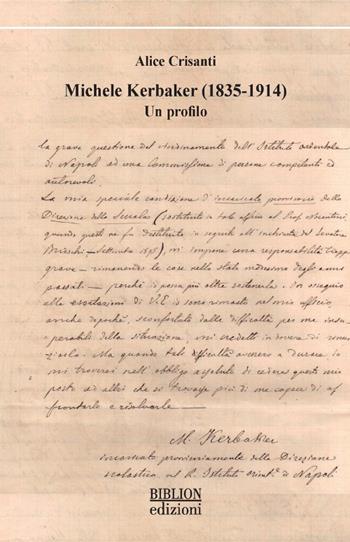 Alice Crisanti
Michele Kerbaker (1835-1914)
Un profilo
la grave questione del riordinamento dell'Istituto orientale
di Napoli ad una Commissione di persone competenti ed
autorevoli.
La mia speciale condizione d'incaricato provvisorio della
Direzione della Scuola (sostituito in tale ufficio al Prof.
quando questi ne fu destituito in seguito all'inchiesta del Senatore
Brioschi — Settembre), m'impone una responsabilità troppo
grave — rimanendo le cose nello stato medesimo degli anni
passati — perchè io possa più oltre sostenerla. Per ossequio
alle esortazioni di V.E. io sono rimasto nel mio ufficio,
anche dopochè, sconfortato dalle difficoltà per me insu-
perabili della situazione, mi credetti in dovere di renun-
ziarlo. Ma quando tali difficoltà avessero a durare io
mi troverei nell'obbligo assoluto di cedere questo mio
posto ad altri che si trovasse più di me capace di af-
frontarle e risolverle —
M. Kerbaker
incaricato provvisoriamente della Direzione
scolastica nel R. Istituto orient.e di Napoli
BIBLION
edizioni